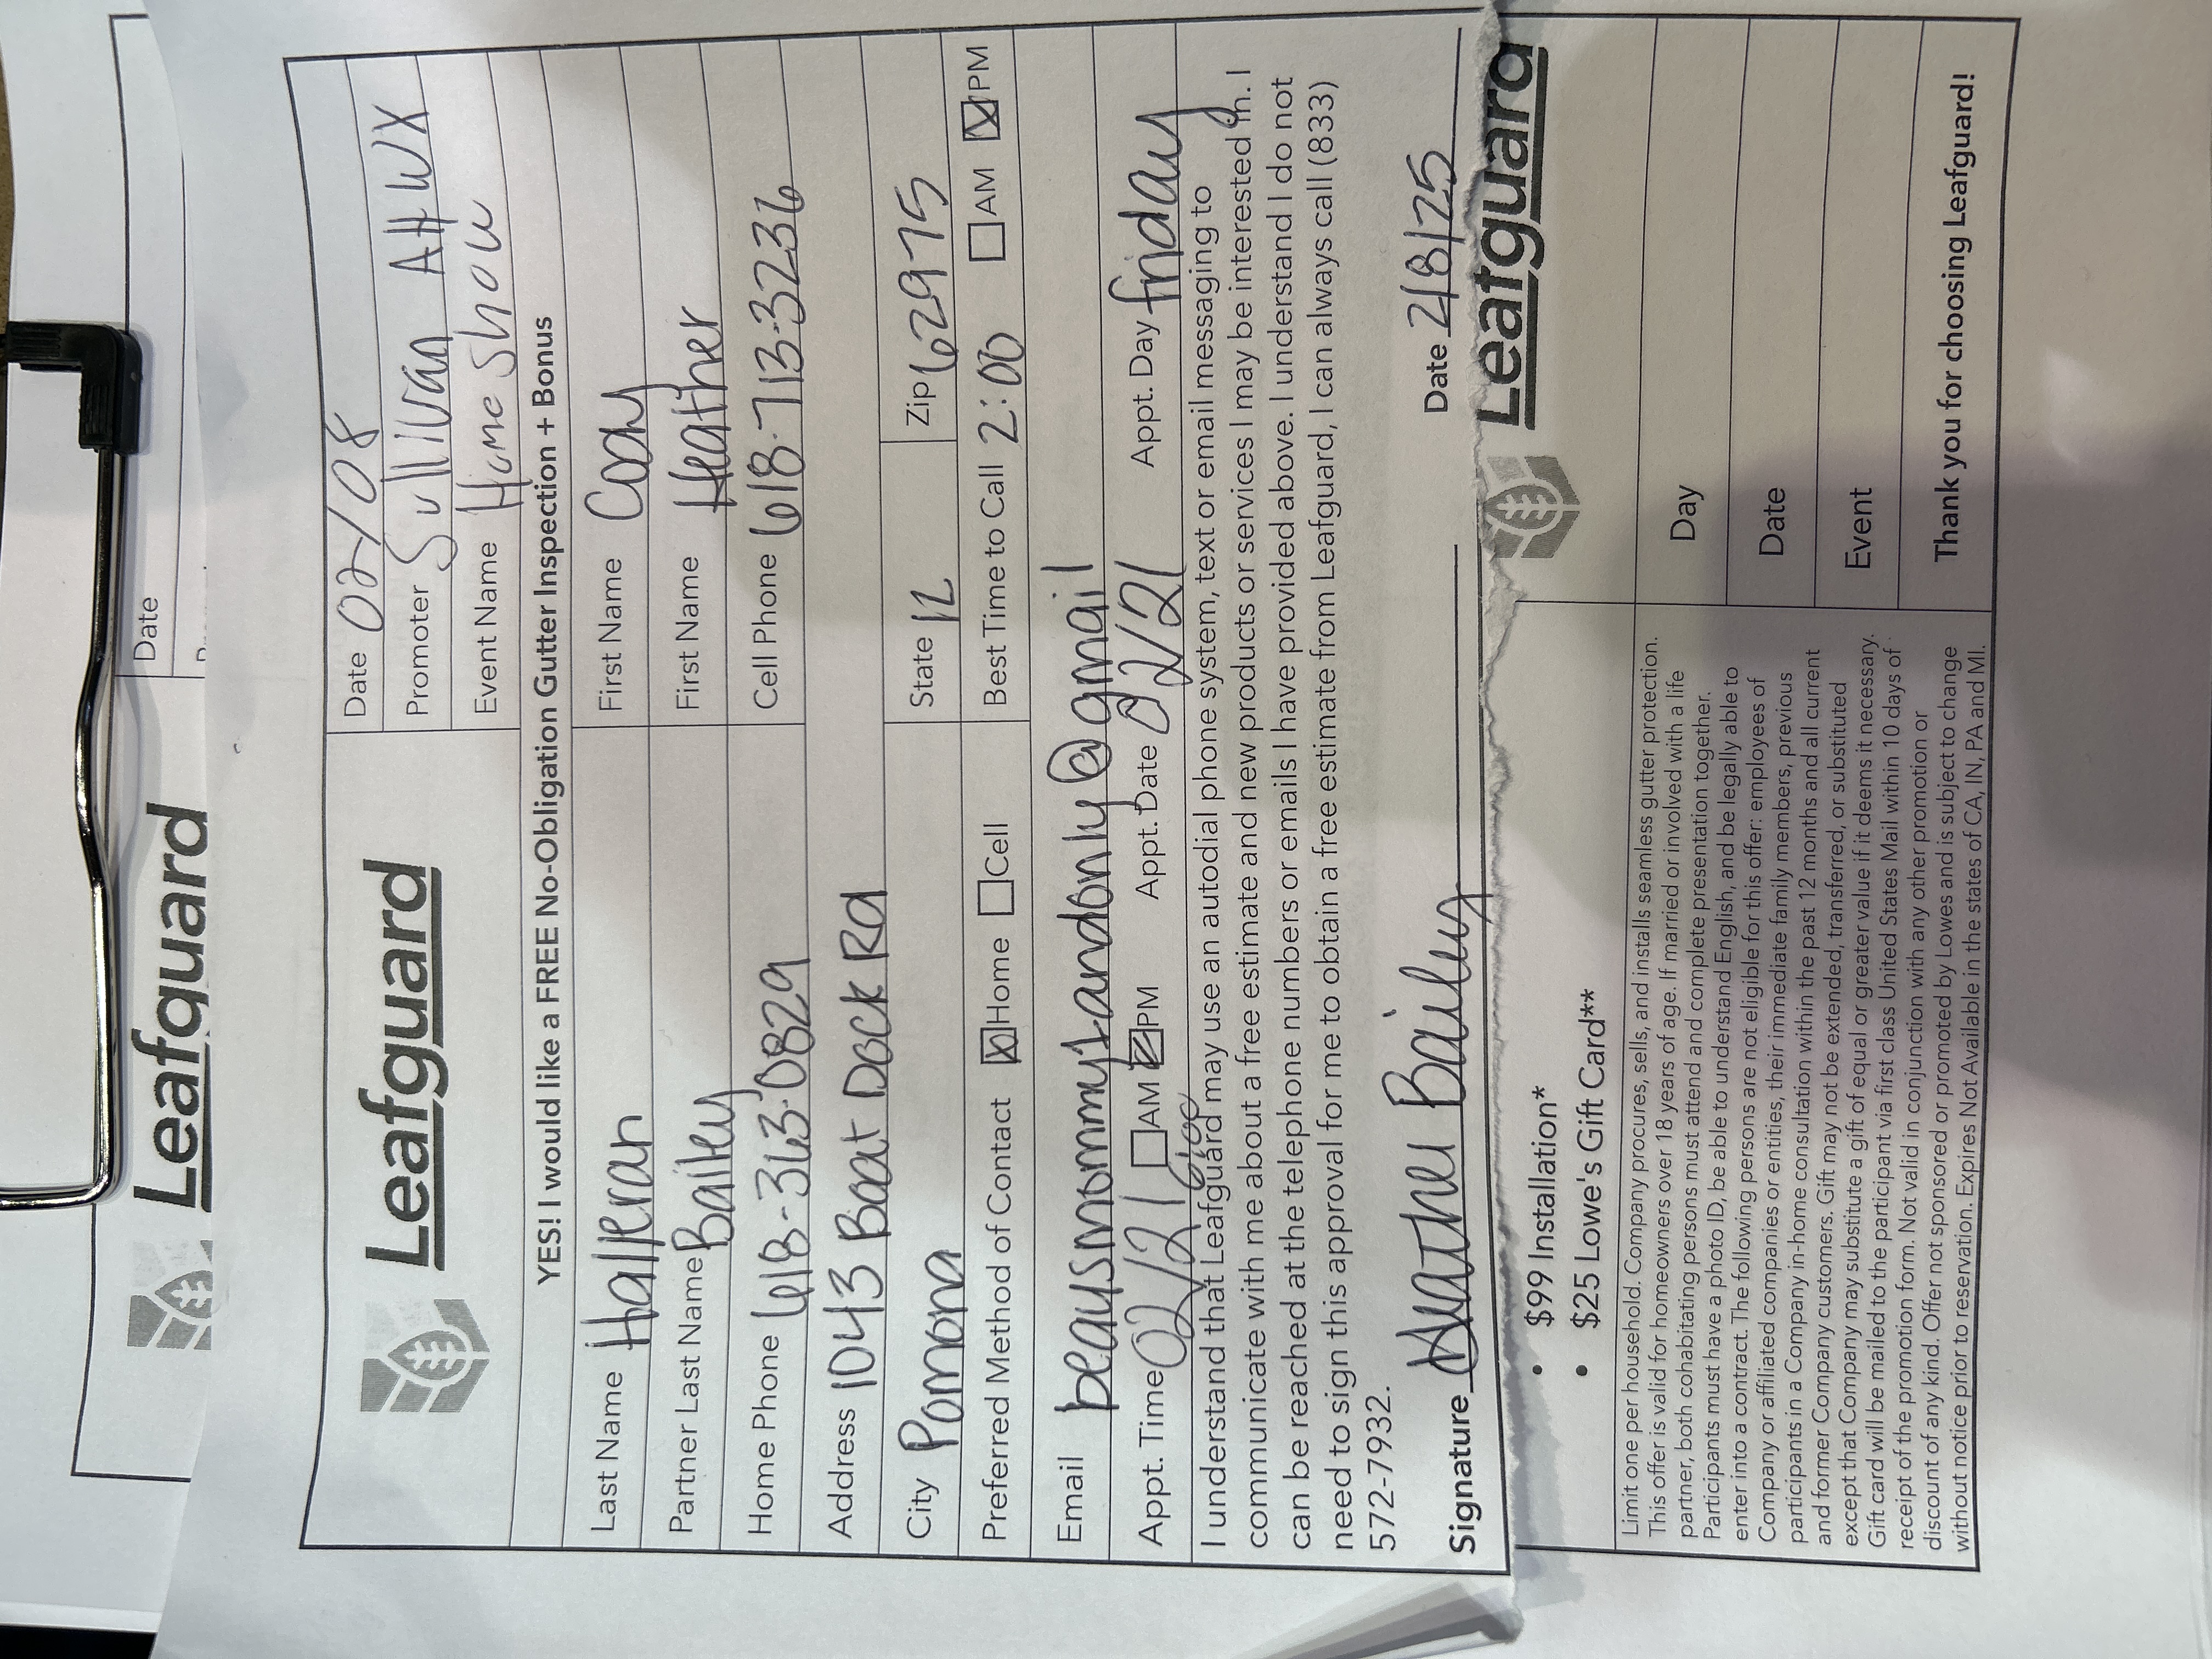 Leafguard
Date
Leafguard
Date 02/08
Promoter Sullivan AHWX
Event Name Home Show
YES! I would like a FREE No-Obligation Gutter Inspection + Bonus
Last Name Halleran First Name Cody
Partner Last Name Bailey First Name Heather
Home Phone 618-363-0829 Cell Phone 618-713-3236
Address 1043 Boat Dock Rd
City Pomona State IL Zip 62975
Preferred Method of Contact Home Cell Best Time to Call 2:00 AM PM
Email beausmommy1andonly@gmail
Appt. Time 02/21 6:00 AM PM Appt. Date 02/21 Appt. Day friday
I understand that Leafguard may use an autodial phone system, text or email messaging to
communicate with me about a free estimate and new products or services I may be interested in. I
can be reached at the telephone numbers or emails I have provided above. I understand I do not
need to sign this approval for me to obtain a free estimate from Leafguard, I can always call (833)
572-7932.
Signature Heather Bailey Date 2/8/25
Leafguard
• $99 Installation*
• $25 Lowe's Gift Card**
Limit one per household. Company procures, sells, and installs seamless gutter protection.
This offer is valid for homeowners over 18 years of age. If married or involved with a life
partner, both cohabitating persons must attend and complete presentation together.
Participants must have a photo ID, be able to understand English, and be legally able to
enter into a contract. The following persons are not eligible for this offer: employees of
Company or affiliated companies or entities, their immediate family members, previous
participants in a Company in-home consultation within the past 12 months and all current
and former Company customers. Gift may not be extended, transferred, or substituted
except that Company may substitute a gift of equal or greater value if it deems it necessary.
Gift card will be mailed to the participant via first class United States Mail within 10 days of
receipt of the promotion form. Not valid in conjunction with any other promotion or
discount of any kind. Offer not sponsored or promoted by Lowes and is subject to change
without notice prior to reservation. Expires Not Available in the states of CA, IN, PA and MI.
Day
Date
Event
Thank you for choosing Leafguard!